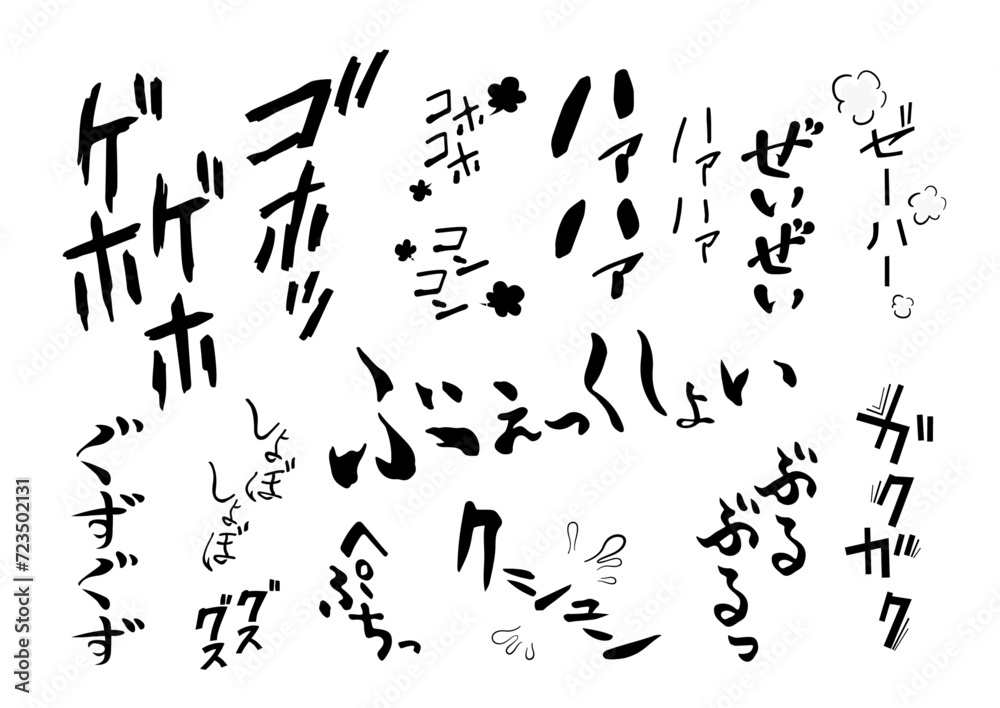 ゲホ
ゲホ
ゴホッ
コホ
コホ
コン
コン
ハァ
ハァ
ハァ
ハァ
ぜぃぜぃ
ゼーハー
ぶぇっくしょい
ぐずぐず
しょぼ
しょぼ
グス
グス
へぷちっ
クシュン
ぶる
ぶるっ
ガクガク
Adobe Stock | #723502131
Adobe Stock